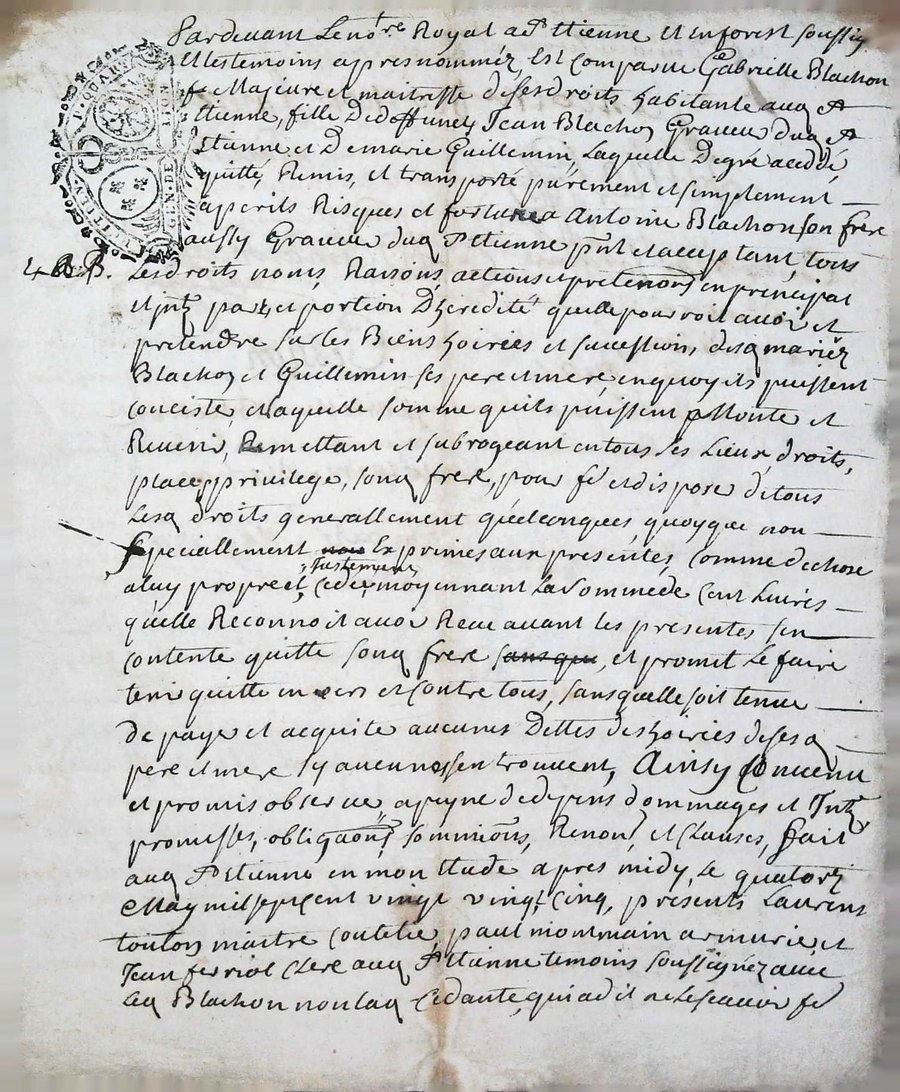 Pardevant Le no.re Royal a St Etienne et en forest soussig.
Et les temoins apres nommez Est Comparue Gabrielle Blachon
fe Majeure et maitresse de ses droits habitante aud St
Etienne, fille de deffunct Jean Blachon Graveur dud St
Etienne et De marie Guillemin, Laquelle De gré a cedé,
quitté, Remis, et transporté purement et simplement
a perils Risques et fortune a Antoine Blachon son frere
aussy Graveur dud St Etienne pnt et acceptant, tous
Les droits noms, Raisons, actions et pretentions en principal
et jntz part et portion D'heredité quelle pourroit avoir et
pretendre sur les Biens hoiries et succession, desd mariéz
Blachon et Guillemin ses pere et mere, en quoy ils puissent
conciste, et a quelle somme quils puissent Monte et
Revenir, Remettant et subrogeant en tous ses Lieux, droits,
place, privilege, sond frere, pour fe et dispose de tous
Lesd droits generallement quelconques, quoyque non
speciallement non Exprimés aux presentes, Comme de chose
justement
a luy propre et, cede moyennant La Somme de Cent Livres
quelle Reconnoit avoir Receu avant les presentes sen
contente quitte sond frere sans que, et promit Le faire
tenir quitte envers et Contre tous, sans quelle soit tenue
de paye et acquite aucunes Dettes des hoiries de sesd
pere et mere sy aucunes sen trouvent, Ainsy Convenu
et promis observer a peyne de depens dommages et Intz
promesses, obligaons, soumions, Renons et Clauses, fait
aud St Etienne en mon Etude apres midy, Le quatorz
May mil sept cent vingt cinq, presents Laurens
toulon maitre Coutelie, paul montmain armurie et
Jean ferriol Clerc aud St Etienne temoins soussignéz avec
Led Blachon non lad Cedante, qui a dit ne Le scavoir fe